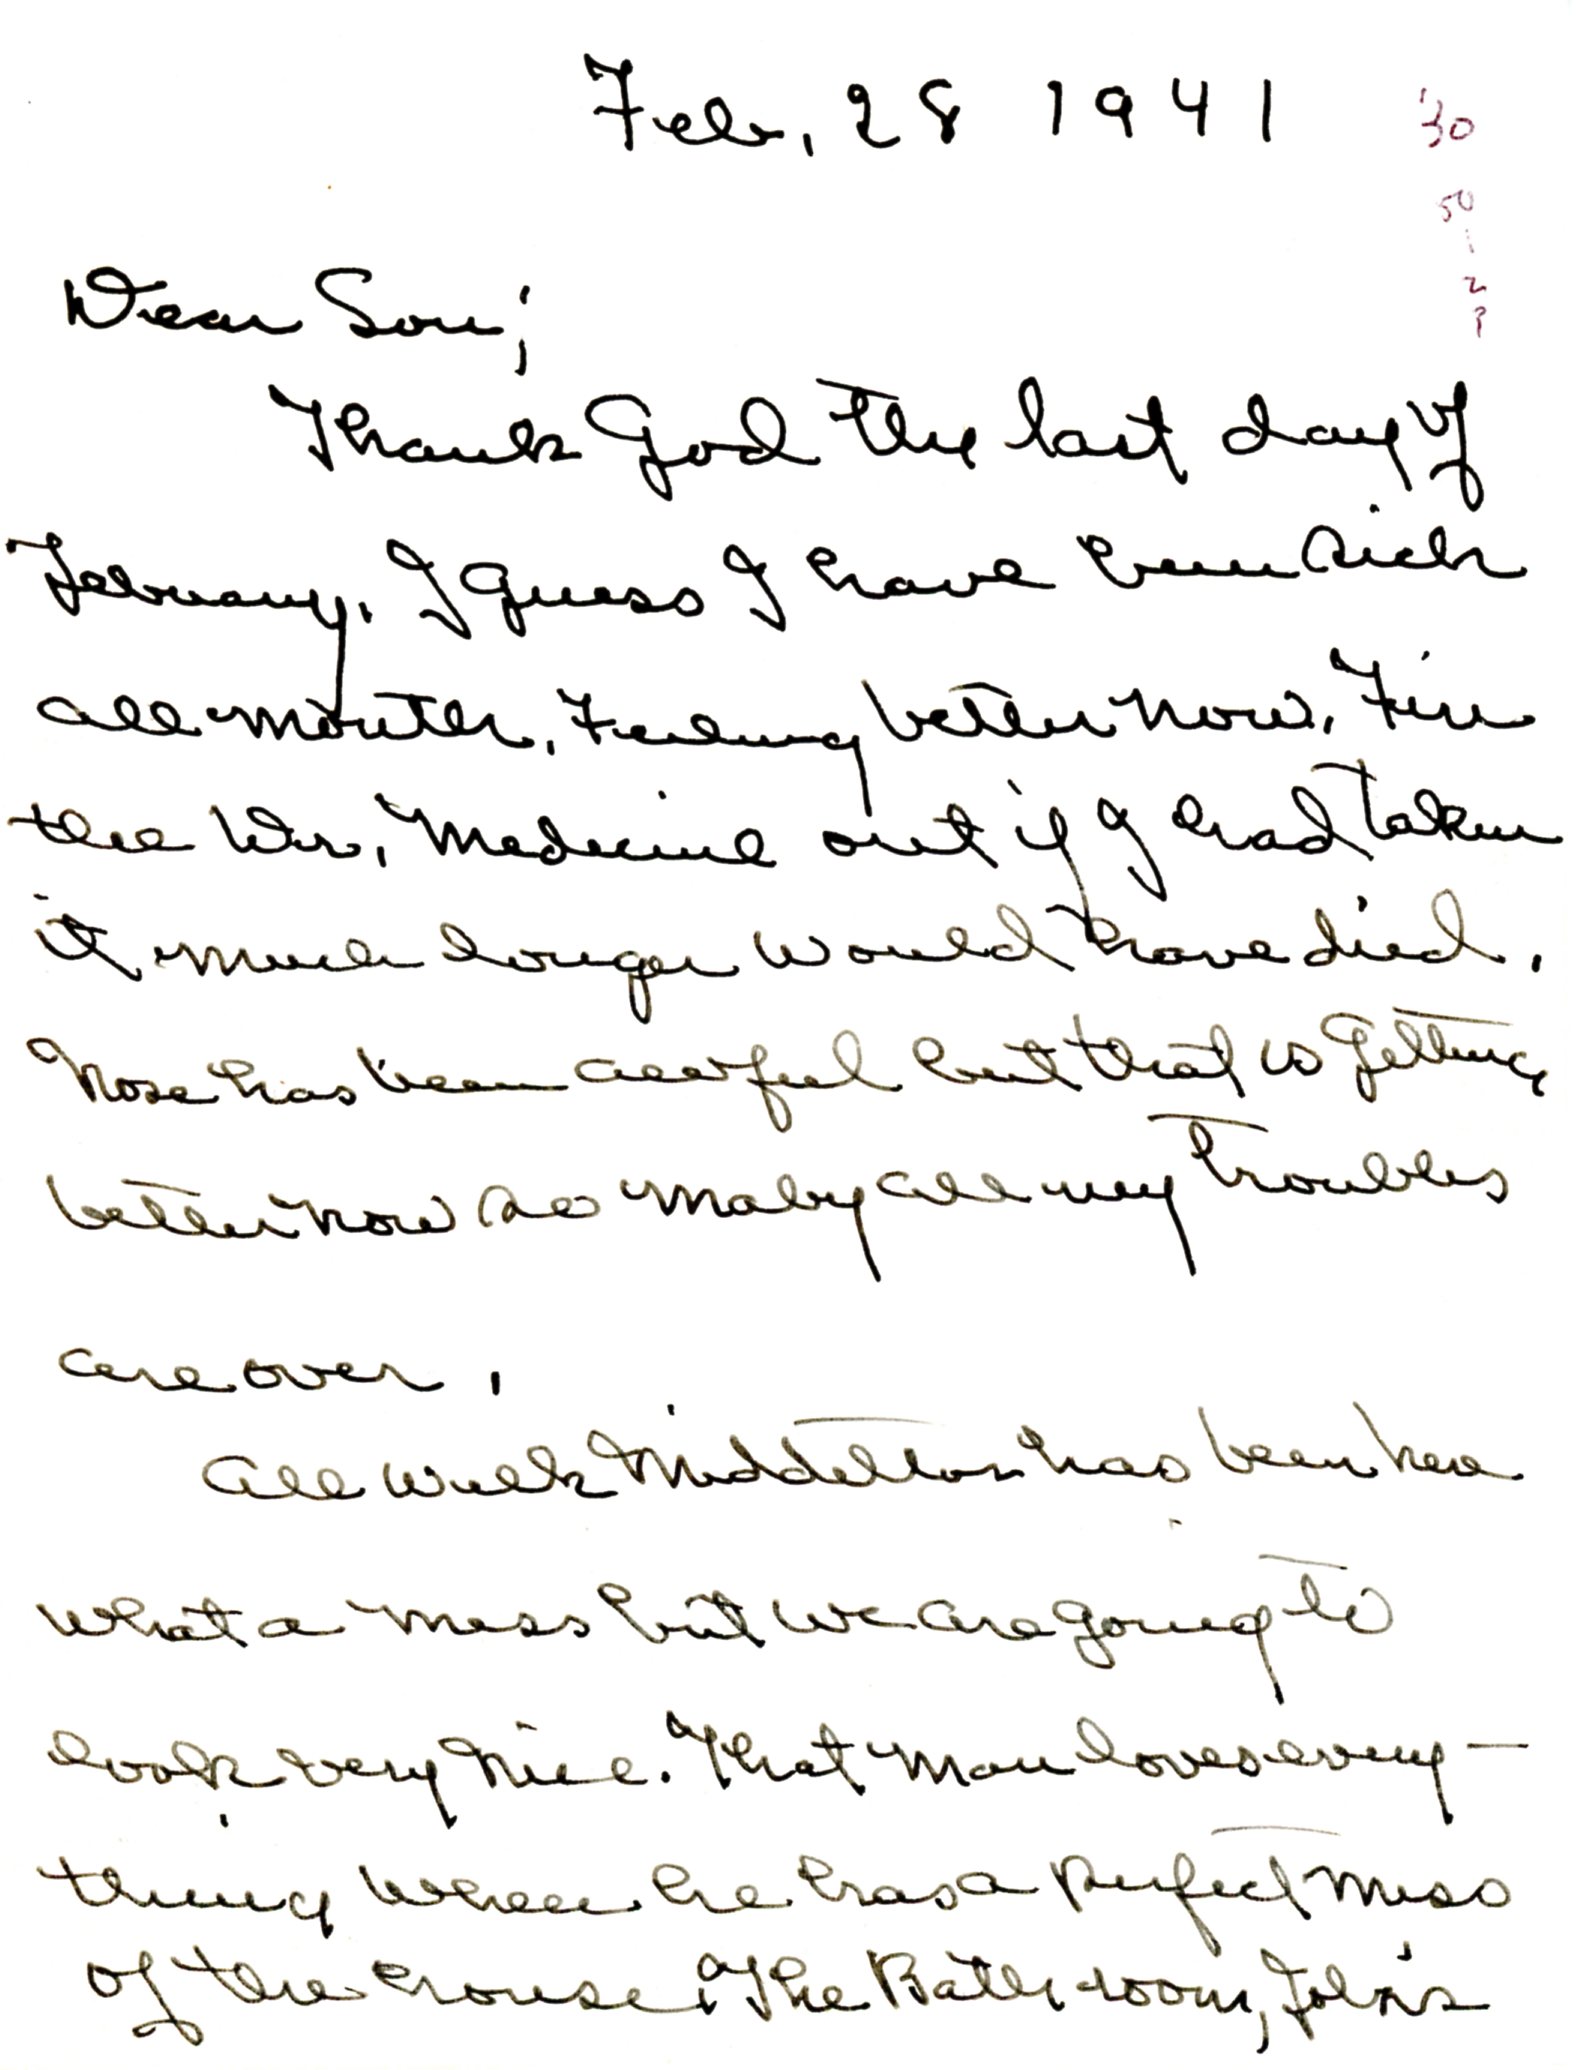 Feb, 28 1941
'30
50
1
2
?
Dear Son;
Thank God the last day of
February. I guess I have been sick
all month. Feeling better now. Fire
the Dr. Medicine out if I had taken
it much longer would have died.
Nose has been awful but that is getting
better now so maby all my troubles
are over.
All week Middleton has been here
what a mess but we are going to
look very nice. That man loves every-
thing when he has a perfect mess
of the house. The Bath room, John's